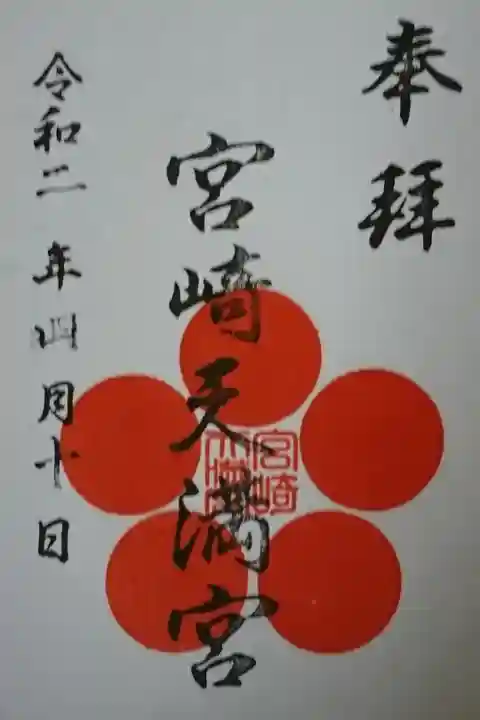 奉拝
宮崎天満宮
宮崎
令和二年四月十日